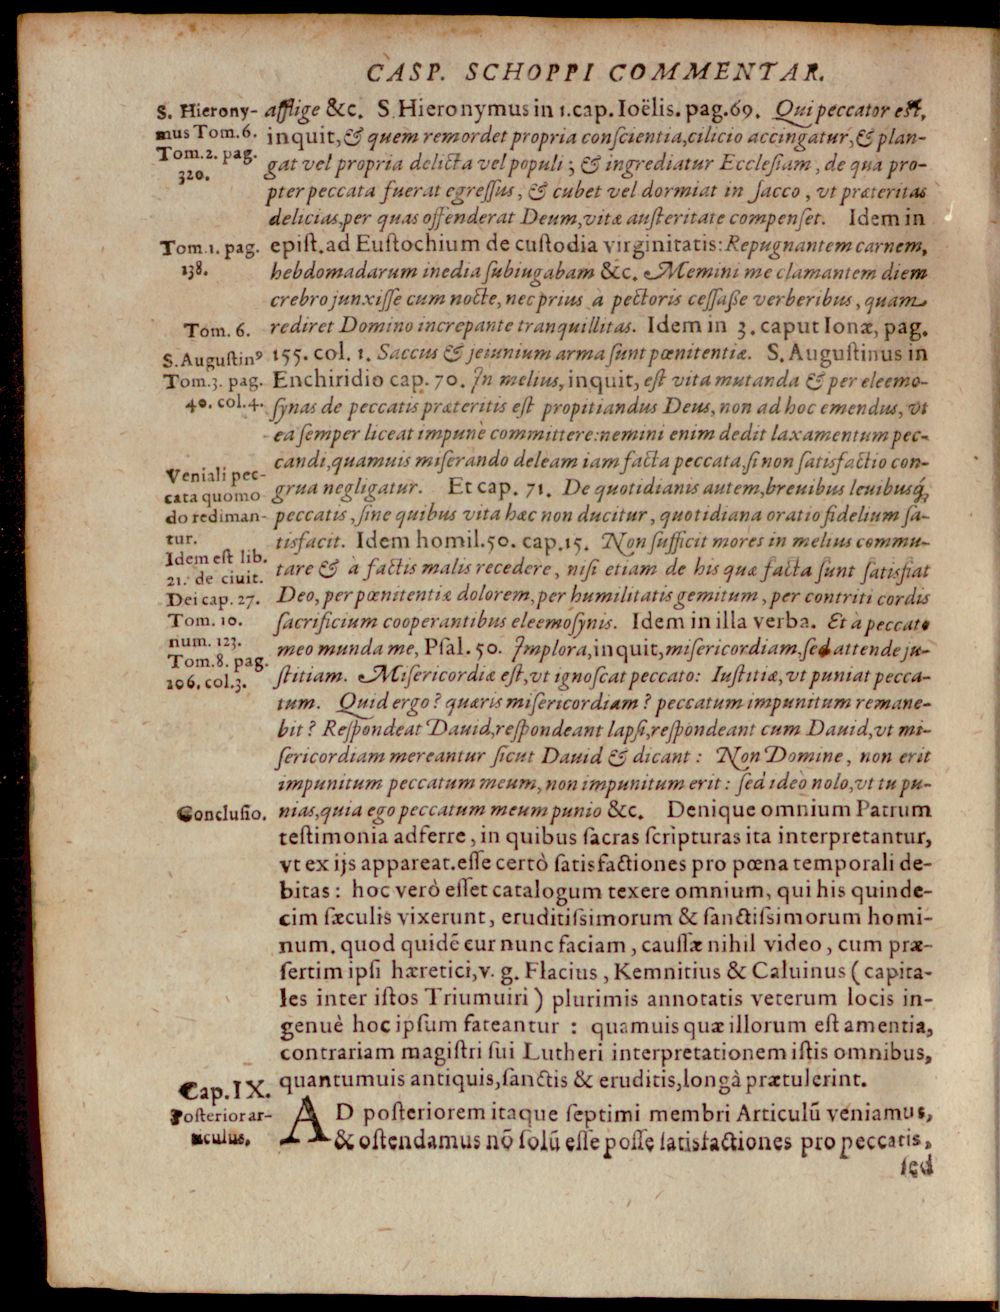 CASP. SCHOPPI COMMENTAR.
S. Hierony-
mus Tom. 6.
Tom. 2. pag.
320.
Tom. 1. pag.
138.
Tom. 6.
S. Augustinꝰ
Tom. 3. pag.
40. col. 4.
Veniali pec-
cata quomo
do rediman-
tur.
Idem est lib.
21. de ciuit.
Dei cap. 27.
Tom. 10.
num. 123.
Tom. 8. pag.
206. col. 3.
Conclusio.
Cap. IX.
Posterior ar-
ticulus.
afflige &c. S Hieronymus in 1. cap. Ioëlis. pag. 69. Qui peccator est,
inquit, & quem remordet propria conscientia, cilicio accingatur, & plan-
gat vel propria delicta vel populi; & ingrediatur Ecclesiam, de qua pro-
pter peccata fuerat egressus, & cubet vel dormiat in sacco, vt præteritas
delicias, per quas offenderat Deum, vitæ austeritate compenset. Idem in
epist. ad Eustochium de custodia virginitatis: Repugnantem carnem,
hebdomadarum inedia subiugabam &c. Memini me clamantem diem
crebro junxisse cum nocte, nec prius à pectoris cessasse verberibus, quam
rediret Domino increpante tranquillitas. Idem in 3. caput Ionæ, pag.
155. col. 1. Saccus & jeiunium arma sunt pœnitentiæ. S. Augustinus in
Enchiridio cap. 70. In melius, inquit, est vita mutanda & per eleemo-
synas de peccatis præteritis est propitiandus Deus, non ad hoc emendus, vt
ea semper liceat impunè committere: nemini enim dedit laxamentum pec-
candi, quamuis miserando deleam iam facta peccata, si non satisfactio con-
grua negligatur. Et cap. 71. De quotidianis autem, breuibus leuibusq́;
peccatis, sine quibus vita hæc non ducitur, quotidiana oratio fidelium sa-
tisfacit. Idem homil. 50. cap. 15. Non sufficit mores in melius commu-
tare & à factis malis recedere, nisi etiam de his quæ facta sunt satisfiat
Deo, per pœnitentiæ dolorem, per humilitatis gemitum, per contriti cordis
sacrificium cooperantibus eleemosynis. Idem in illa verba. Et a peccato
meo munda me, Psal. 50. Implora, inquit, misericordiam, sed attende ju-
stitiam. Misericordiæ est, vt ignoscat peccato: Iustitiæ, vt puniat pecca-
tum. Quid ergo? quæris misericordiam? peccatum impunitum remane-
bit? Respondeat Dauid, respondeant lapsi, respondeant cum Dauid, vt mi-
sericordiam mereantur sicut Dauid & dicant: Non Domine, non erit
impunitum peccatum meum, non impunitum erit: sed ideò nolo, vt tu pu-
nias, quia ego peccatum meum punio &c. Denique omnium Patrum
testimonia adferre, in quibus sacras scripturas ita interpretantur,
vt ex ijs appareat. esse certò satisfactiones pro pœna temporali de-
bitas: hoc verò esset catalogum texere omnium, qui his quinde-
cim sæculis vixerunt, eruditissimorum & sanctissimorum homi-
num. quod quidē cur nunc faciam, caussæ nihil video, cum præ-
sertim ipsi hæretici, v. g. Flacius, Kemnitius & Caluinus (capita-
les inter istos Triumuiri) plurimis annotatis veterum locis in-
genuè hoc ipsum fateantur: quamuis quæ illorum est amentia,
contrariam magistri sui Lutheri interpretationem istis omnibus,
quantumuis antiquis, sanctis & eruditis, longà prætulerint.
AD posteriorem itaque septimi membri Articulū veniamus,
& ostendamus nō solū esse posse satisfactiones pro peccatis,
sed